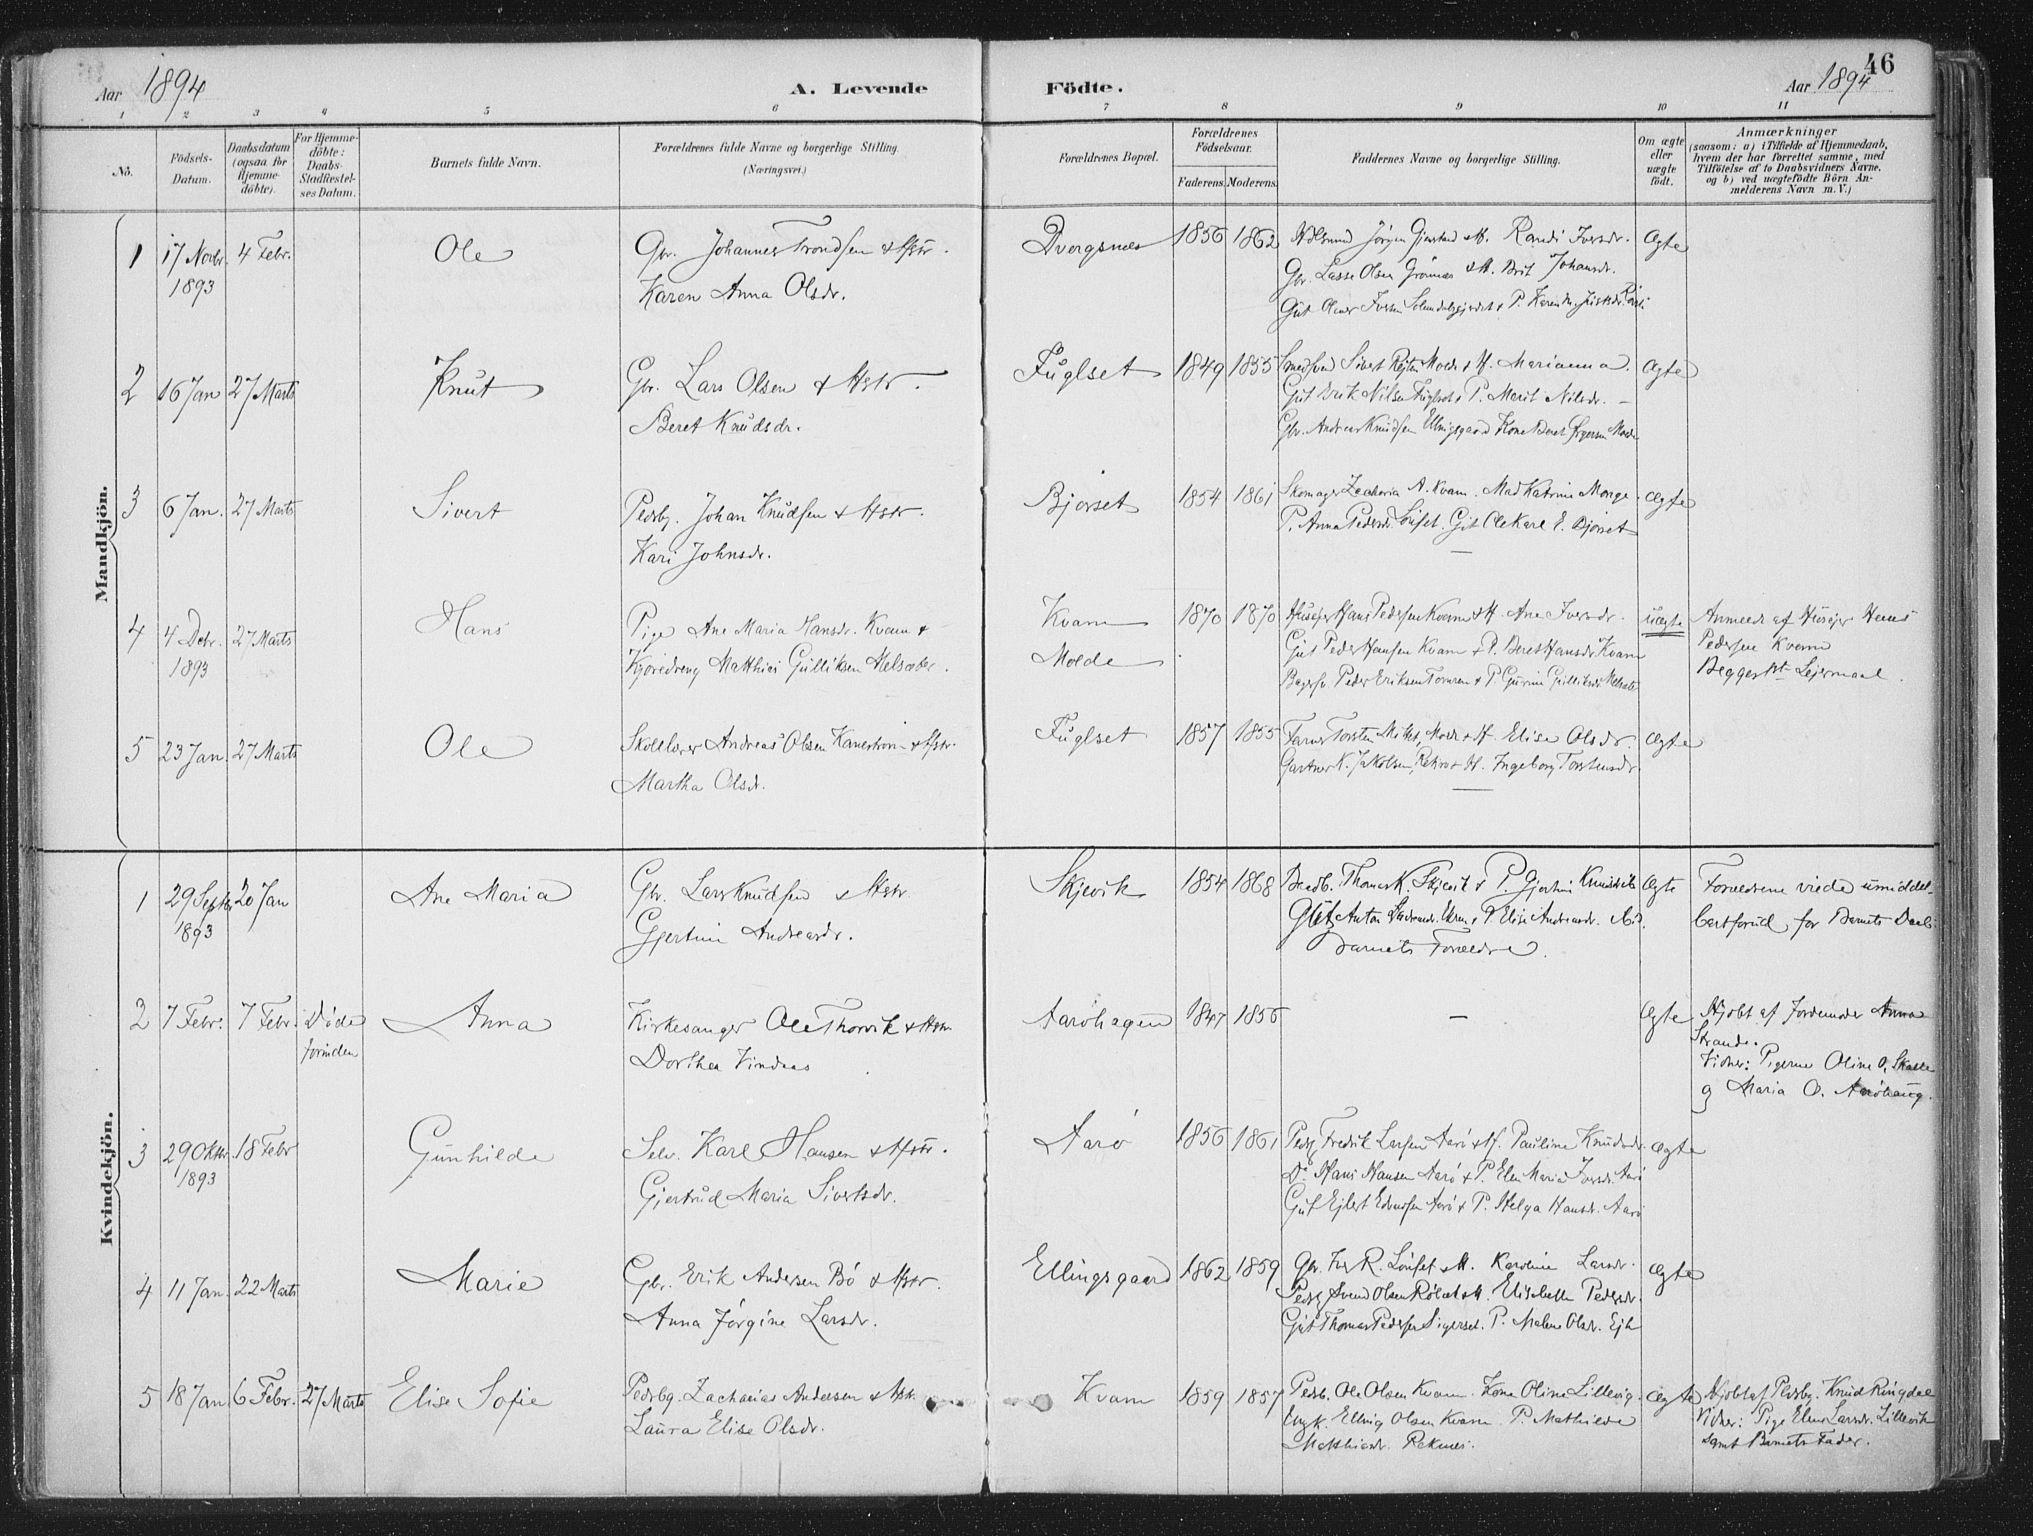 46
Aar 1894
A. Levende Födte.
Aar 1894
1 2 3 4 5 6 7 8 9 10 11
No.
Födsels-Datum.
Daabsdatum (ogsaa for Hjemme-döbte).
For Hjemme-döbte: Daabs-Stadfæstel-ses Datum.
Barnets fulde Navn.
Forældrenes fulde Navne og borgerlige Stilling. (Næringsvei.)
Forældrenes Bopæl.
Forældrenes Födselsaar.
Faderens. Moderens.
Faddernes Navne og borgerlige Stilling.
Om ægte eller uægte födt.
Anmærkninger
(saasom: a) i Tilfælde af Hjemmedaab, hvem der har forrettet samme, med Tilföielse af to Daabsvidners Navne, og b) ved uægtefödte Börn An-melderens Navn m. V.)
Mandkjön.
1 17 Novbr. 4 Febr. Ole Gbr. Johannes Trondsen & Hstr. Dvergsnes 1856 1862 Jørgen & H. Randi Iversdr. Ægte
1893 Karen Anna Olsdr. Gbr. Lasse Olsen Grønnes & H. Brit Johansdr.
Gut Iversen & P. Karen
2 16 Jan 27 Marts Knut Gbr. Lars Olsen & Hstr. Fuglset 1849 1855 Sivert Molde & H. Marianna. Ægte
Beret Knudsdr. Gut Erik Nilsen Fuglset & P. Marit Nilsdr. –
Gbr. Andreas Knudsen Ellingsgaard Kone Beret Molde
3 6 Jan. 27 Marts Sivert Pladsbg. Johan Knudsen & Hstr. Bjørset 1854 1861 Skomager Zacharia A. Kvam. Mad Katrine Monge. Ægte
Kari Johnsdr. P. Anna Pedersdr. Lønset. Gut Ole Karl E. Bjørset
4 4 Debr. 27 Marts Hans Pige Ane Maria Hansdr. Kvam & Kvam 1870 1870 Husejer Hans Pedersen Kvam & H. Ane Iversdr. uægte Anmeldt af Husejer Hans
1893 Matthias Gulliksen Melsæter. Molde Gut Peder Hansen Kvam & P. Beret Hansdr. Kvam Pedersen Kvam
Peder Eriksen & P. Gurine Gulliksdr. Begges 1ste Lejermaal.
5 23 Jan. 27 Marts Ole Skolelærer Andreas Olsen & Hstr. Fuglset 1857 1855 Torsten Molde & H. Elise Olsdr. Ægte
Martha Olsdr. Gartner K. Jakobsen, Reknes & H. Ingeborg Torstensdr.
Kvindekjön.
1 29 Septbr. 20 Jan Ane Maria Gbr. Lars Knudsen & Hstr. Skjevik 1854 1868 Thomas K. Skjevik & P. Gjertine Ægte Forældrene viede umiddel-
1893 Gjertine Andreasdr. Gut Anton & P. Elise Andreasdr. bart forud for Barnets Daab.
Barnets Forældre.
2 7 Febr. 7 Febr. Døde Anna Kirkesanger Ole Thorvik & Hstr. Aarøhagen 1847 1856 – Ægte Hjdbt af Jordemoder Anna
forinden Dorthea Vindaas Strande.
Vidner: Pigerne Oline O. Skalle
og Maria O. Aarøhaug.
3 29 Oktbr. 18 Febr Gunhilde Selv. Karl Hansen & Hstr. Aarø 1856 1861 Fredrik Larsen Aarø & H. Pauline Knudsdr. Ægte
1893 Gjertrud Maria Sivertsdr. Do Hans Hansen Aarø & P. Elen Maria Iversdr. Aarø
Gut Ejlert Aarø & P. Helga Hansdr. Aarø
4 11 Jan. 22 Marts Marie Gbr. Erik Andersen Bø & Hstr. Ellingsgaard 1862 1859 Gbr. R. Lønset & H. Karoline Larsdr. Ægte
Anna Jørgine Larsdr. Svend Olsen & H. Elisabeth Pedersdr.
Gut Thomas Pedersen P. Malene Olsdr.
5 18 Jan. 6 Febr. 27 Marts Elise Sofie Pladsbg. Zacharias Andersen & Hstr. Kvam 1859 1857 Ole Olsen Kvam. Kone Oline Lillevig. Ægte Hjdbt af Pladsbg. Knud Ringdal
Laura Elise Olsdr. Ungk. Elling Olsen Kvam P. Mathilde Vidner: Pige Elen Larsdr. Lillevik
Matthiasdr. Reknes. samt Barnets Fader.